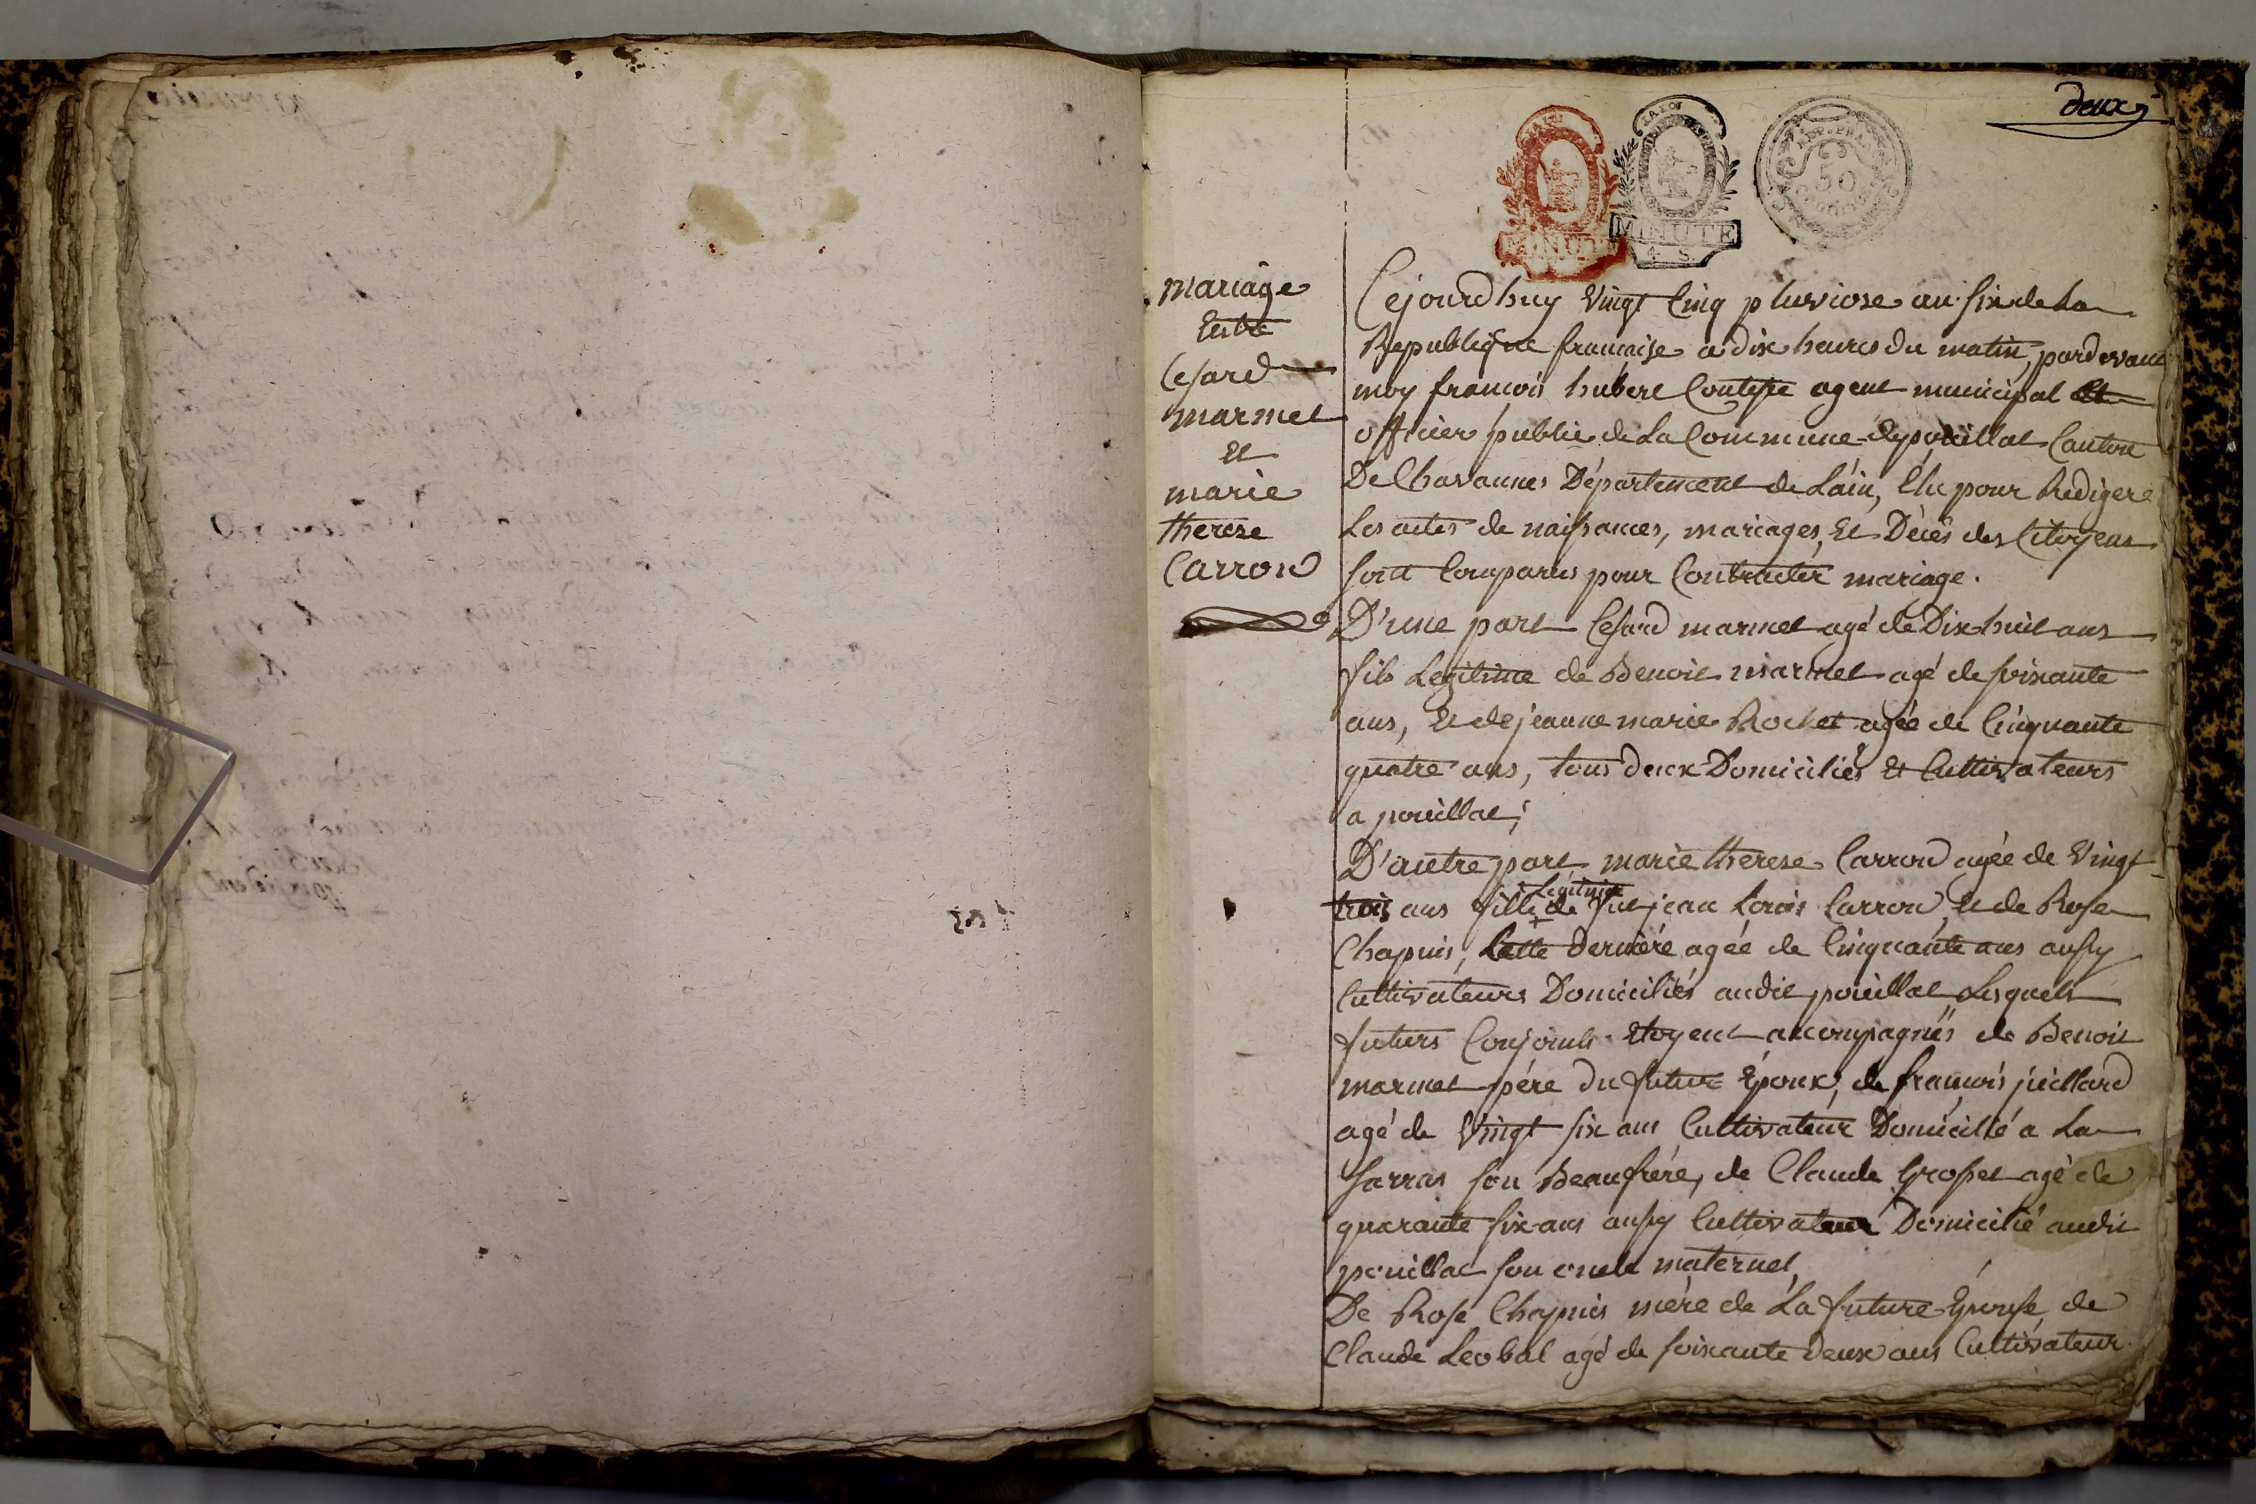 deux
MINUTE
MINUTE
4 S.
REP. FRA
50
mariage
Entre
Cesard
marmet
Et
marie
therese
Carrond
Cejourdhuy Vingt Cinq pluviose an six de La
Republique française a dix heures du matin, pardevant
moy françois hubert Contesse agent municipal et
officier public de La Commune de pouillat Canton
De Chavannes Département de L'ain, Elu pour Rediger
Les actes de naissances, mariages, Et Décés des Citoyens
sont Comparus pour Contracter mariage.
D'une part Cesard marmet agé de Dix huit ans
fils Legitime de Benoit marmet agé de soixante
ans, Et de jeanne marie Rochet agée de Cinquante
quatre ans, tous deux Domiciliés Et Cultivateurs
a pouillat;
D'autre part marie therese Carrond agée de Vingt
Legitime
trois ans fille de fut jean Louis Carrond Et de Rose
Chapuis, Cette derniére agée de Cinquante ans aussy
Cultivateurs Domiciliés audit pouillat Lesquels
futurs Conjoints Etoyent accompagnés de Benoit
marmet pére Du futur Époux, de françois juillard
agé de Vingt six ans Cultivateur Domicilié a La
Sarras son Beaufrére, de Claude Grosset agé de
quarante six ans aussy Cultivateur Domicilié audit
pouillat son oncle maternel,
De Rose Chapuis mére de La future Épouse de
Claude Leobal agé de soixante deux ans Cultivateur